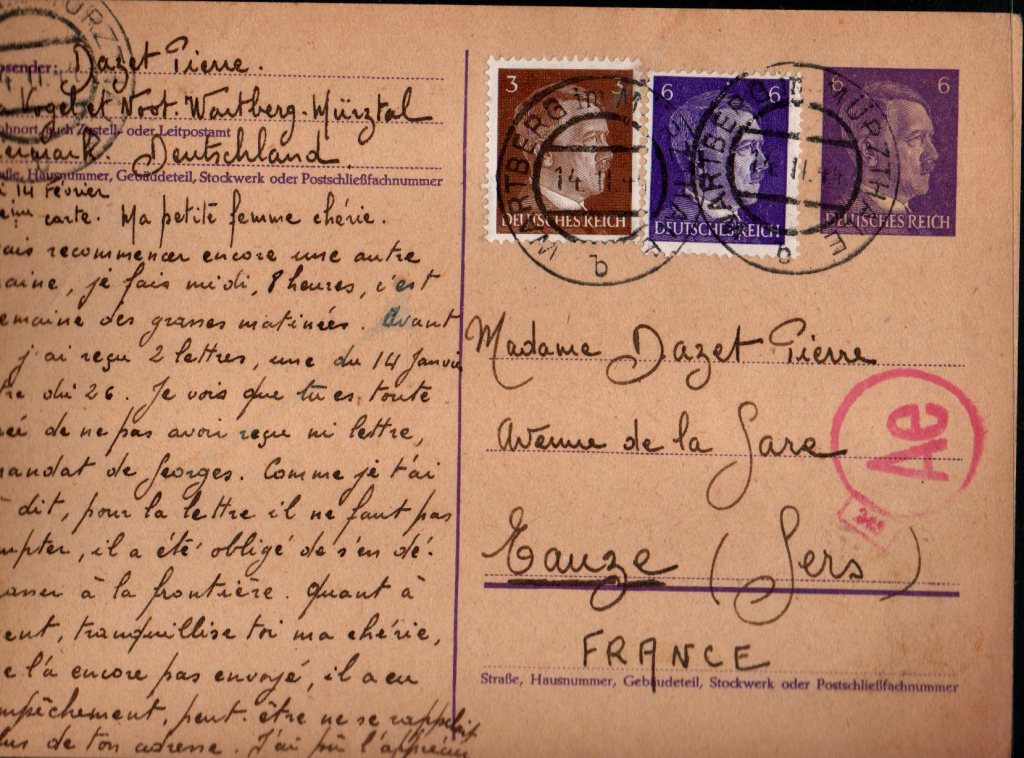 Absender: Dazet Pierre.
Vogel et Noot. Wartberg. Mürztal
Wohnort, auch Zustell- oder Leitpostamt
Deutschland.
Straße, Hausnummer, Gebäudeteil, Stockwerk oder Postschließfachnummer
14 Février
carte. Ma petite femme chérie.
recommencer encore une autre
je fais midi, 8 heures, c'est
emaine des grasses matinées. Avant
j'ai reçu 2 lettres, une du 14 Janvier
du 26. Je vois que tu es toute
de ne pas avoir reçu ni lettre,
mandat de Georges. Comme je t'ai
dit, pour la lettre il ne faut pas
mpter, il a été obligé de s'en dé-
asser à la frontière. Quant à
ent, tranquillise toi ma chérie,
l'a encore pas envoyé, il a eu
mpêchement, peut-être ne se rappelait
lus de ton adresse. J'ai pu l'apprécier
3
DEUTSCHES REICH
6 6
DEUTSCHES REICH
6 6
DEUTSCHES REICH
WARTBERG im MÜRZTALE
14.11.44
b
WARTBERG im MÜRZTALE
14.11.44
b
Madame Dazet Pierre
Avenue de la Gare
Eauze (Gers)
FRANCE
Straße, Hausnummer, Gebäudeteil, Stockwerk oder Postschließfachnummer
Ae